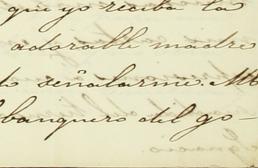 que yo reciba la
adorable madre
señalarme. M
banquero del go-